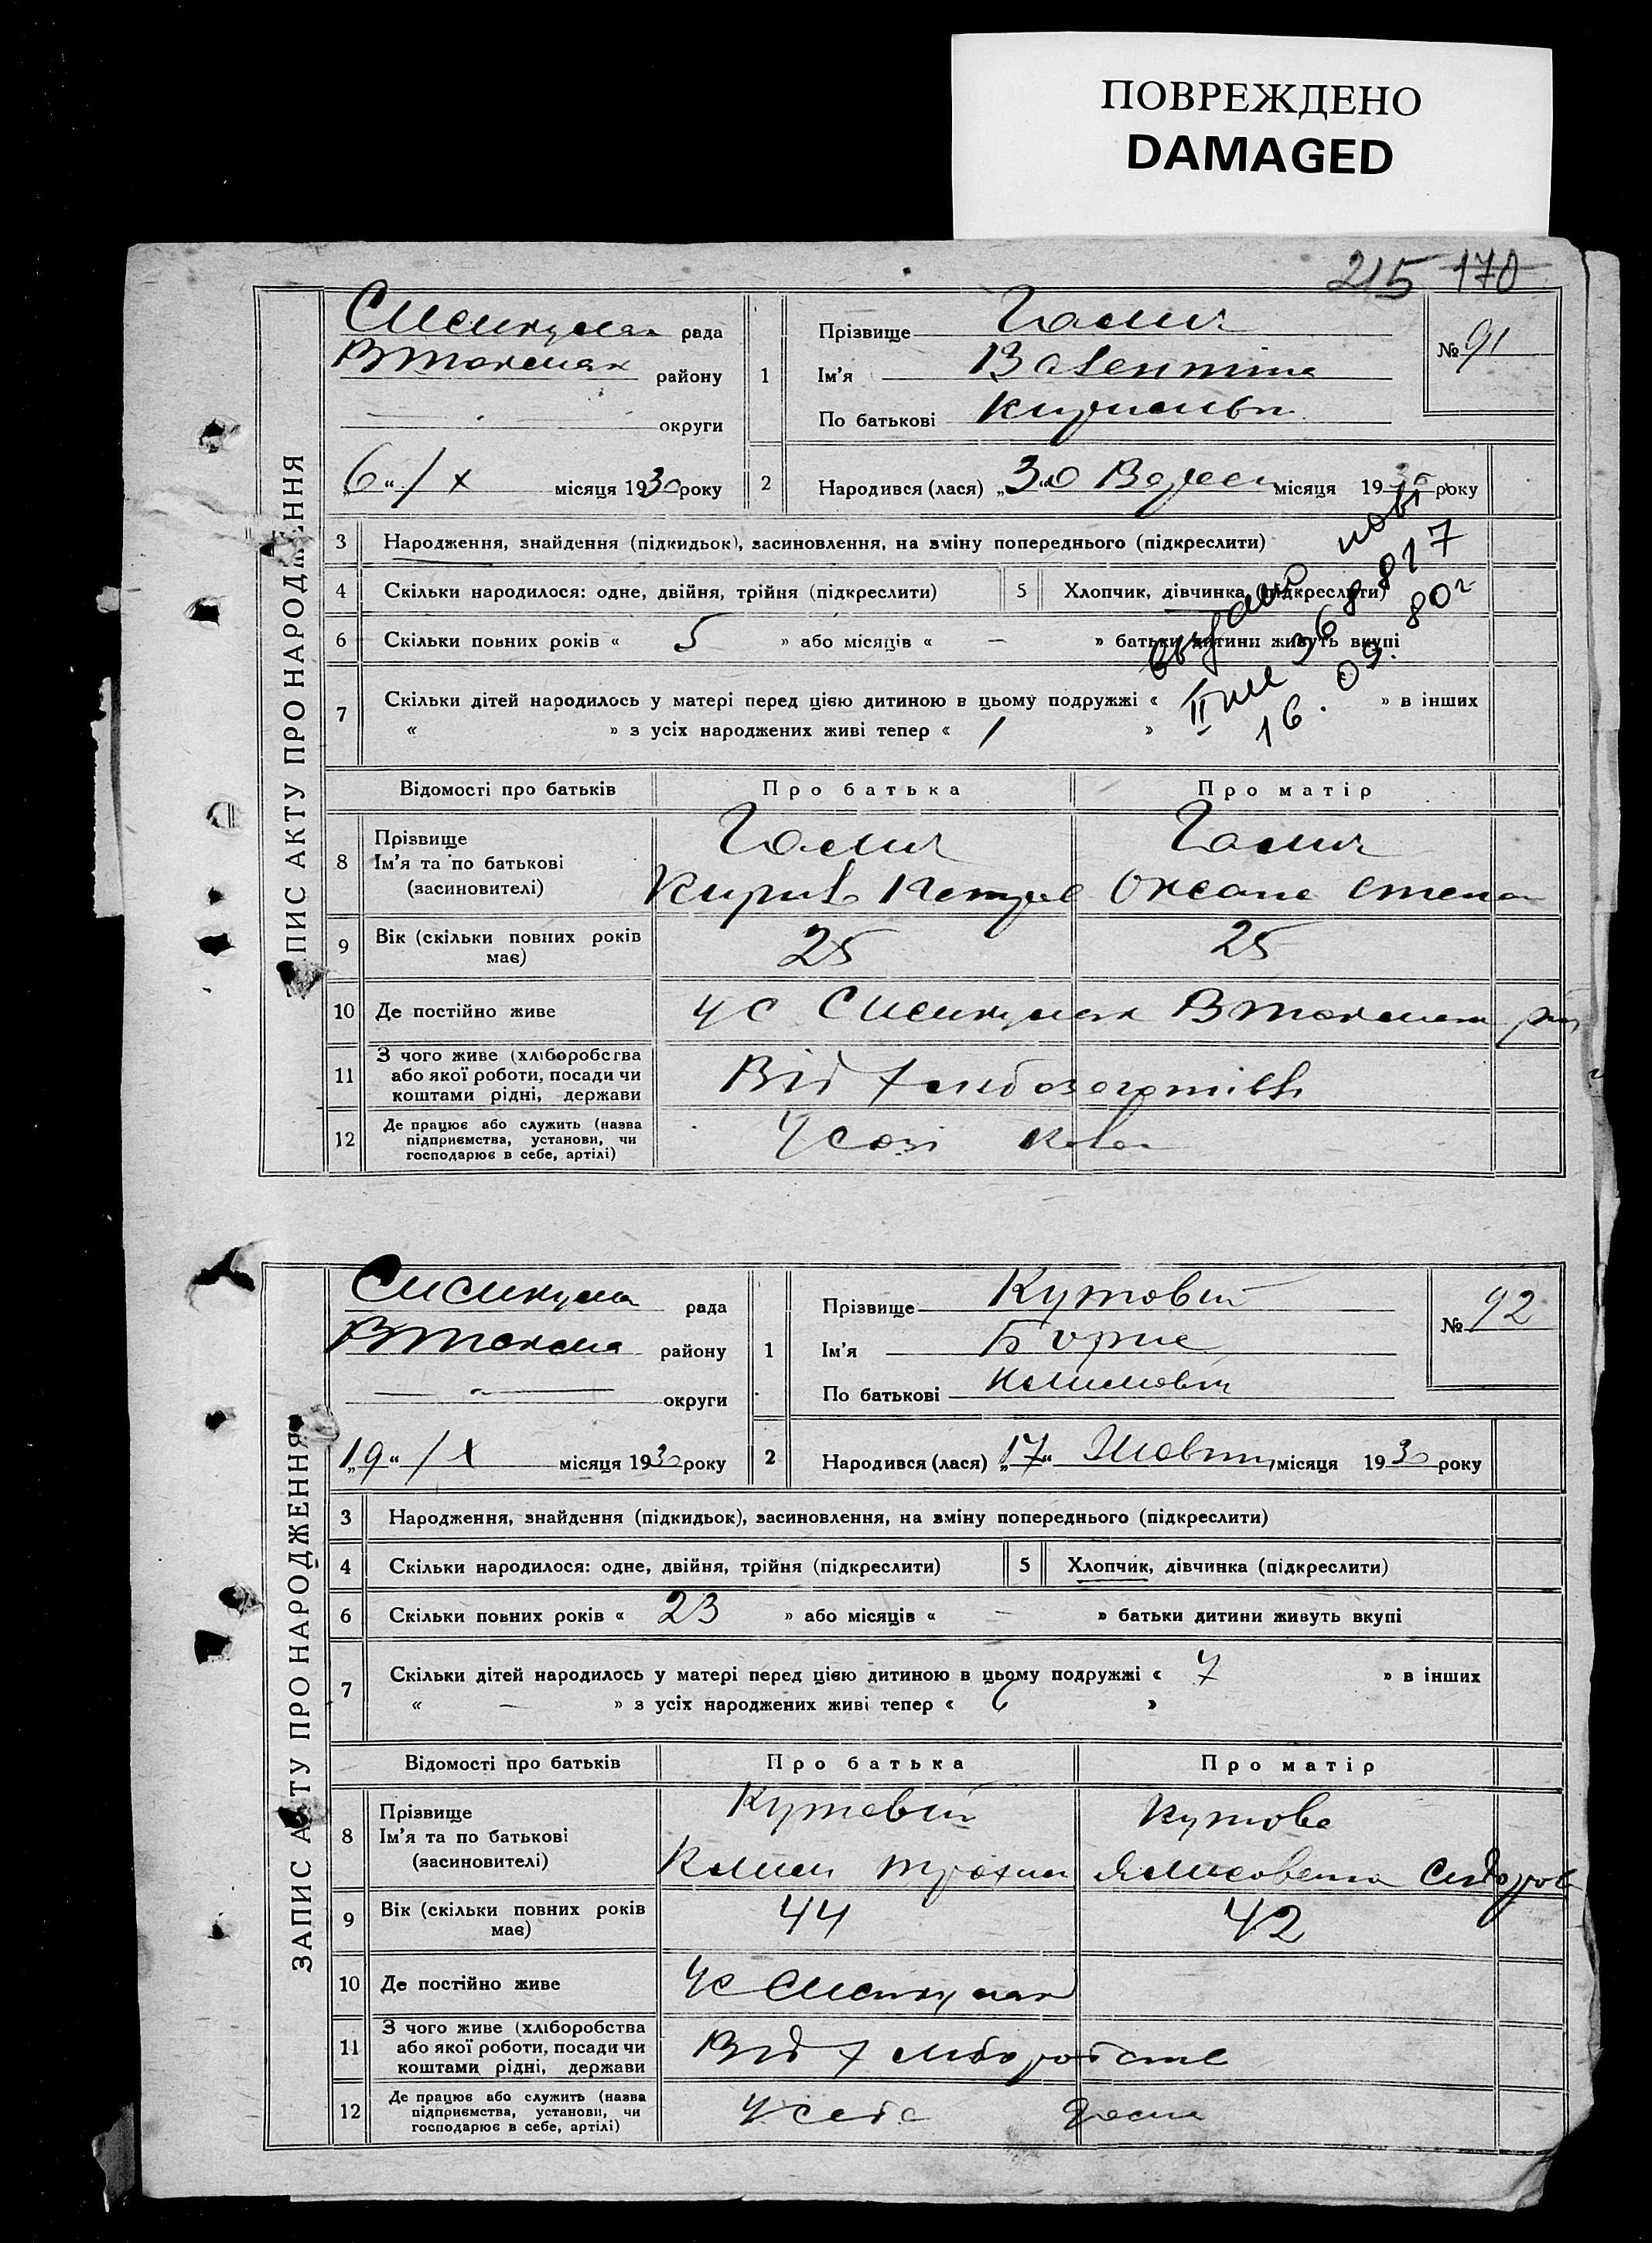 ПОВРЕЖДЕНО
DAMAGED
215 170
ЗАПИС АКТУ ПРО НАРОДЖЕННЯ
рада
ВТокмак району
округи
„6“ /X місяця 1930 року
1
Прізвище Галич
Ім’я Валентина
По батькові
№ 91
2 Народився (лася) „30“ Верес місяця 1930 року
3 Народження, знайдення (підкидьок), засиновлення, на зміну попереднього (підкреслити)
4 Скільки народилося: одне, двійня, трійня (підкреслити)
5 Хлопчик, дівчинка (підкреслити)
6 Скільки повних років « 5 » або місяців « — » батьки дитини живуть вкупі
7 Скільки дітей народилось у матері перед цією дитиною в цьому подружжі « » в інших
« » з усіх народжених живі тепер « 1 »
16. 09. 80г
Відомості про батьків Про батька Про матір
8 Прізвище
Ім’я та по батькові
(засиновителі)
Галич Галич
Кирил Петров Оксана Степан
9 Вік (скільки повних років має) 25 25
10 Де постійно живе ВТокмак
11 З чого живе (хліборобства або якої роботи, посади чи коштами рідні, держави Від
12 Де працює або служить (назва підприємства, установи, чи господарює в себе, артілі) У созі
ЗАПИС АКТУ ПРО НАРОДЖЕННЯ
рада
ВТокма району
округи
„19“ /X місяця 1930 року
1
Прізвище Кутовий
Ім’я Борис
По батькові Климович
№ 92
2 Народився (лася) „17“ Жовтн місяця 1930 року
3 Народження, знайдення (підкидьок), засиновлення, на зміну попереднього (підкреслити)
4 Скільки народилося: одне, двійня, трійня (підкреслити)
5 Хлопчик, дівчинка (підкреслити)
6 Скільки повних років « 23 » або місяців « — » батьки дитини живуть вкупі
7 Скільки дітей народилось у матері перед цією дитиною в цьому подружжі « 7 » в інших
« — » з усіх народжених живі тепер « 6 »
Відомості про батьків Про батька Про матір
8 Прізвище
Ім’я та по батькові
(засиновителі)
Кутовий Кутова
Клим Трохим Ялисовета Сидоров
9 Вік (скільки повних років має) 44 42
10 Де постійно живе
11 З чого живе (хліборобства або якої роботи, посади чи коштами рідні, держави Від хліборобств
12 Де працює або служить (назва підприємства, установи, чи господарює в себе, артілі) У себе